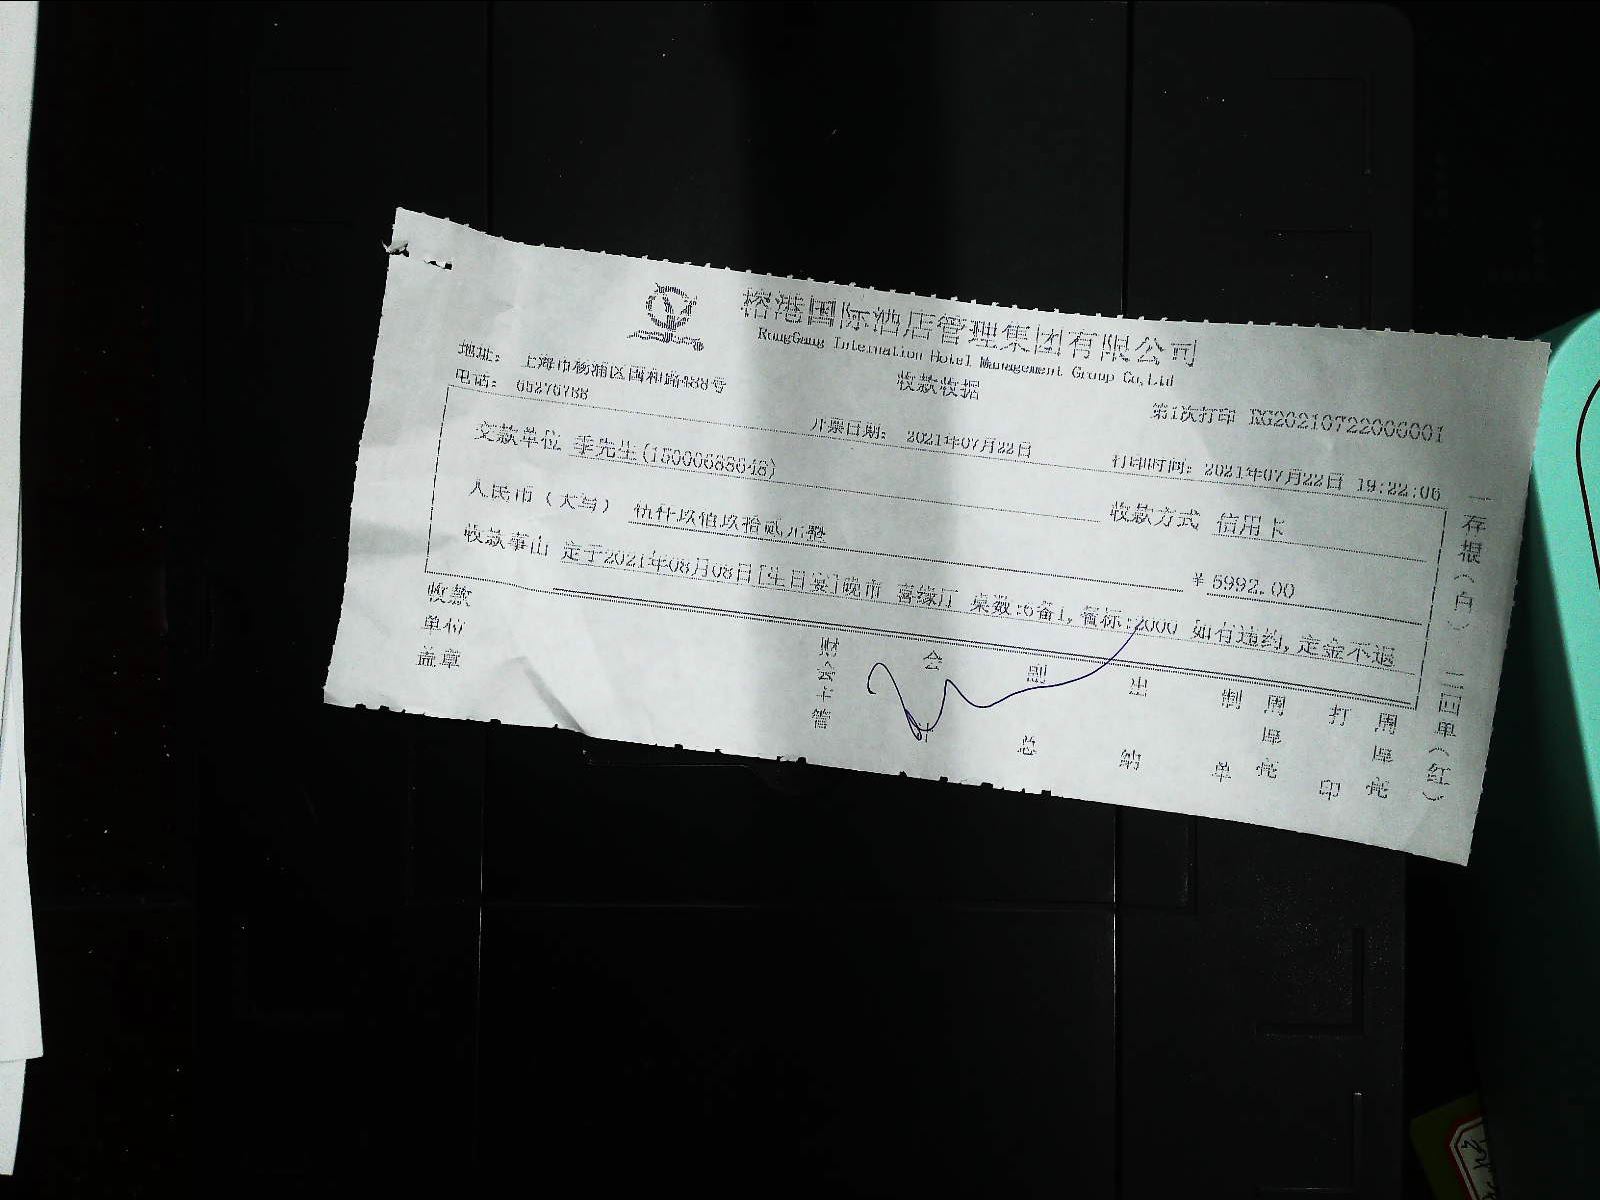 榕港国际酒店管理集团有限公司
RongGang Internation Hotel Management Group Co,Ltd
地址: 上海市杨浦区国和路888号
收款收据
电话: 65276788
第1次打印 RG20210722006001
开票日期: 2021年07月22日
打印时间: 2021年07月22日 19:22:06
交款单位 季先生(15000688648)
收款方式 信用卡
人民币(大写) 伍仟玖佰玖拾贰元整
¥ 5992.00
收款事由 定于2021年08月08日[生日宴]晚市 喜缘厅 桌数:6备1,餐标:2000 如有违约,定金不退
收款单位盖章
财会主管
会计
副总
出纳
制单
周厚亮
打印
周厚亮
一存根(白) 二回单(红)